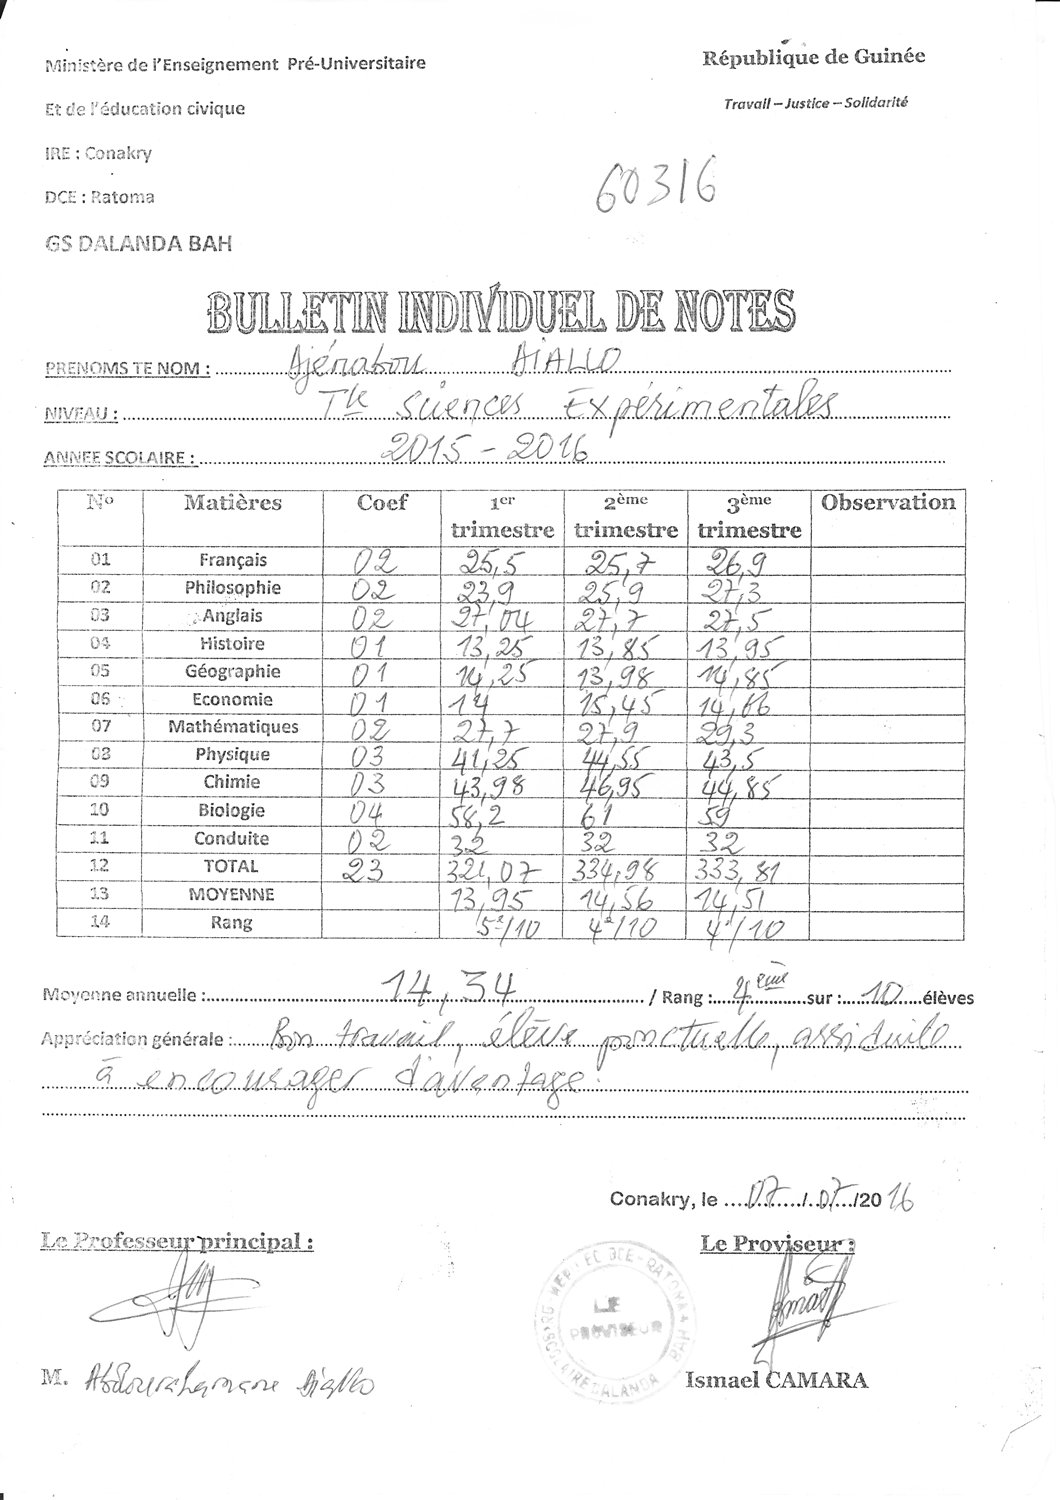 Ministère de l'Enseignement Pré-Universitaire
République de Guinée
Et de l'éducation civique
Travail – Justice – Solidarité
IRE : Conakry
60316
DCE : Ratoma
GS DALANDA BAH
BULLETIN INDIVIDUEL DE NOTES
PRENOMS TE NOM : Djénabou DIALLO
NIVEAU : Tle Sciences Expérimentales
ANNEE SCOLAIRE : 2015 - 2016
N° Matières Coef 1er trimestre 2ème trimestre 3ème trimestre Observation
01 Français 02 25,5 25,7 26,9
02 Philosophie 02 23,9 25,9 27,3
03 Anglais 02 27,04 27,7 27,5
04 Histoire 01 13,25 13,85 13,95
05 Géographie 01 14,25 13,98 14,85
06 Economie 01 14 15,45 14,66
07 Mathématiques 02 27,7 27,9 29,3
08 Physique 03 41,25 44,55 43,5
09 Chimie 03 43,98 46,95 44,85
10 Biologie 04 58,2 61 59
11 Conduite 02 32 32 32
12 TOTAL 23 321,07 334,98 333,81
13 MOYENNE 13,95 14,56 14,51
14 Rang 5e/10 4e/10 4e/10
Moyenne annuelle : 14,34 / Rang : 4ème sur : 10 élèves
Appréciation générale : Bon travail, élève ponctuelle, assiduile
à encourager d'avantage.
Conakry, le 07/07/2016
Le Professeur principal :
Le Proviseur :
LE
PROVISEUR
M. Abdourahamane Diallo
Ismael CAMARA